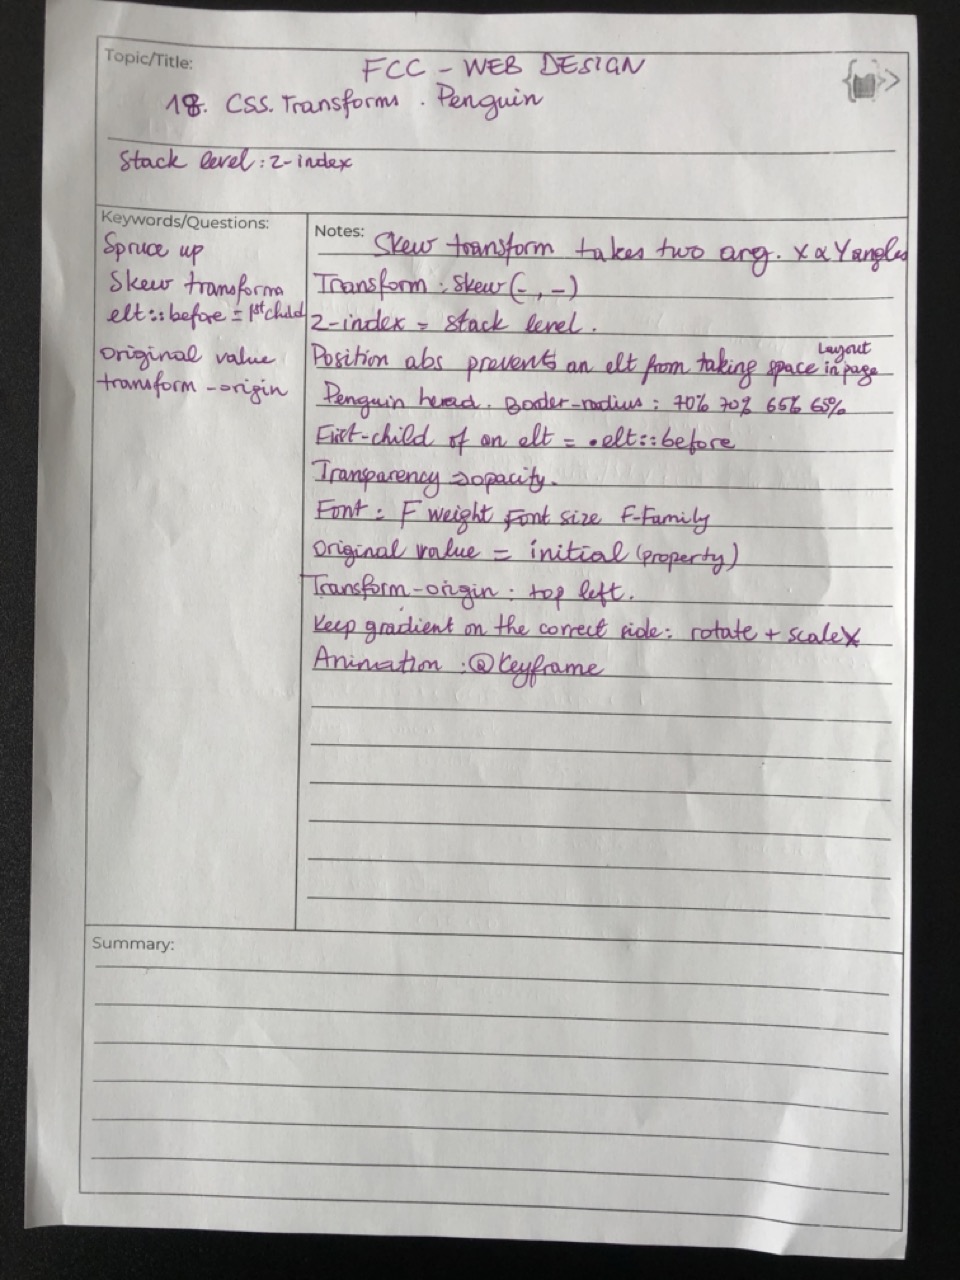 Topic/Title:
FCC - WEB DESIGN
18. CSS. Transforms. Penguin
Stack level : z-index
Keywords/Questions:
Spruce up
Skew transforms
elt::before = 1st child
Original value
transform-origin
Notes:
Skew transform takes two arg. X & Y angles
Transform : skew(-, -)
z-index = stack level.
Position abs prevents an elt from taking space in page
Layout
Penguin head. Border-radius : 70% 70% 65% 65%
First-child of an elt = .elt::before
Transparency => opacity.
Font : F weight Font size F-Family
Original value = initial (property)
Transform-origin : top left.
Keep gradient on the correct side : rotate + scaleX
Animation : @Keyframe
Summary: